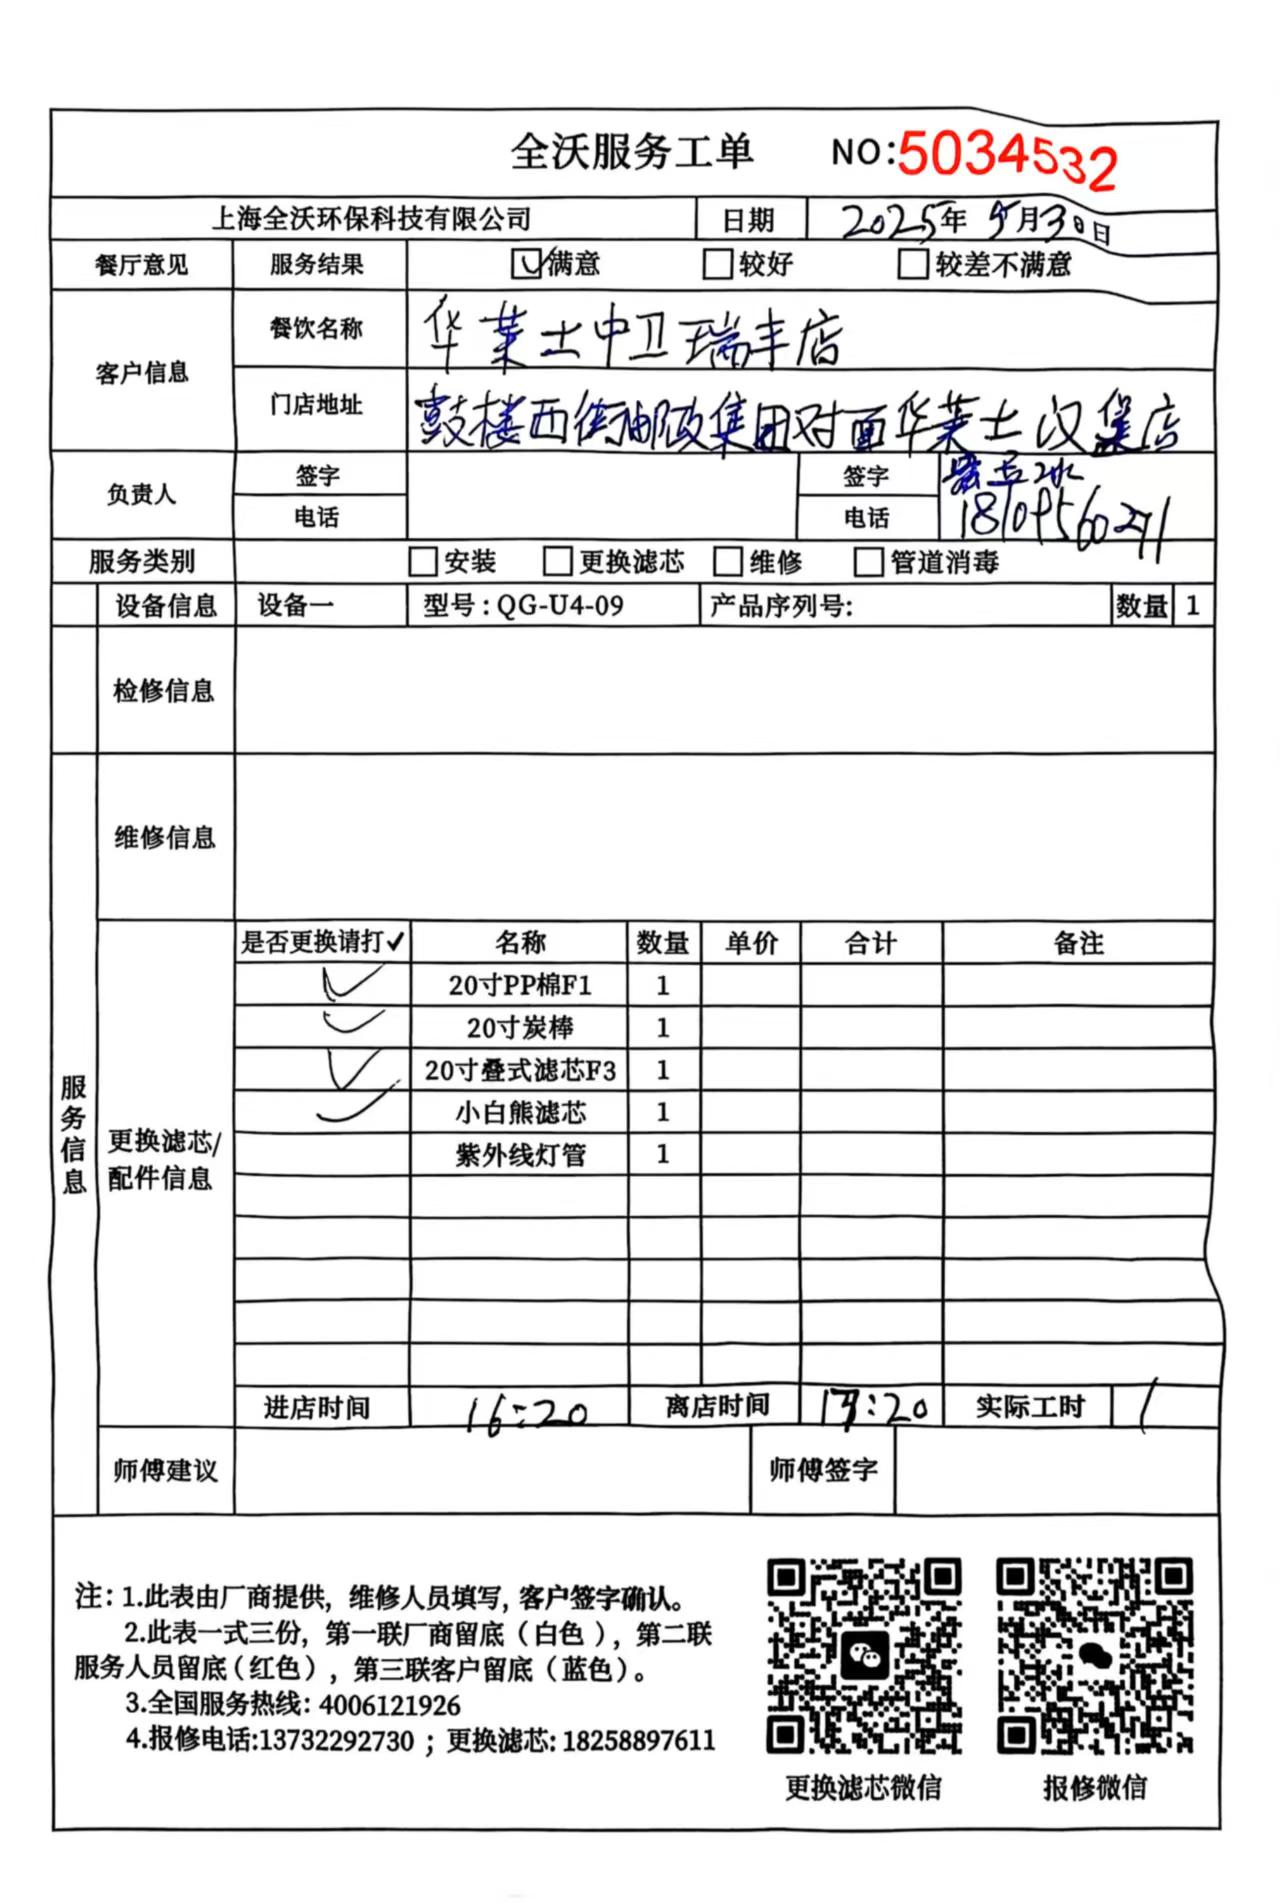 全沃服务工单 NO:5034532
上海全沃环保科技有限公司 日期 2025年5月30日
餐厅意见 服务结果 满意 较好 较差不满意
客户信息 餐饮名称 华莱士中卫瑞丰店
门店地址 鼓楼西街邮政集团对面华莱士汉堡店
负责人 签字 签字
电话 电话 18109560271
服务类别 安装 更换滤芯 维修 管道消毒
设备信息 设备一 型号:QG-U4-09 产品序列号: 数量 1
检修信息
维修信息
服务信息
更换滤芯/
配件信息
是否更换请打✓ 名称 数量 单价 合计 备注
✓ 20寸PP棉F1 1
✓ 20寸炭棒 1
✓ 20寸叠式滤芯F3 1
✓ 小白熊滤芯 1
紫外线灯管 1
进店时间 16:20 离店时间 17:20 实际工时 1
师傅建议 师傅签字
注:1.此表由厂商提供,维修人员填写,客户签字确认。
2.此表一式三份,第一联厂商留底(白色),第二联
服务人员留底(红色),第三联客户留底(蓝色)。
3.全国服务热线:4006121926
4.报修电话:13732292730;更换滤芯:18258897611
更换滤芯微信 报修微信